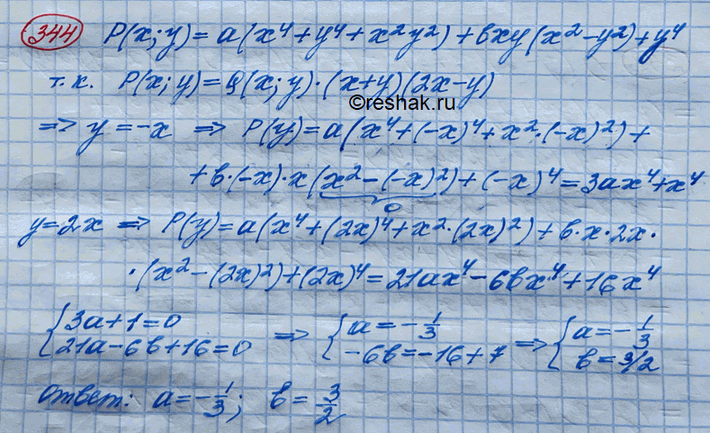 344 P(x;y)=a(x⁴+y⁴+x²y²)+bxy(x²-y²)+y⁴
т.к. P(x;y)=Q(x;y)·(x+y)(2x-y)
©reshak.ru
=> y=-x => P(y)=a(x⁴+(-x)⁴+x²·(-x)²)+
+b·(-x)·x(x²-(-x)²)+(-x)⁴=3ax⁴+x⁴
0
y=2x => P(y)=a(x⁴+(2x)⁴+x²·(2x)²)+b·x·2x·
·(x²-(2x)²)+(2x)⁴=21ax⁴-6bx⁴+16x⁴
{3a+1=0 => {a=-1/3 => {a=-1/3
21a-6b+16=0 -6b=-16+7 b=3/2
Ответ: a=-1/3; b=3/2